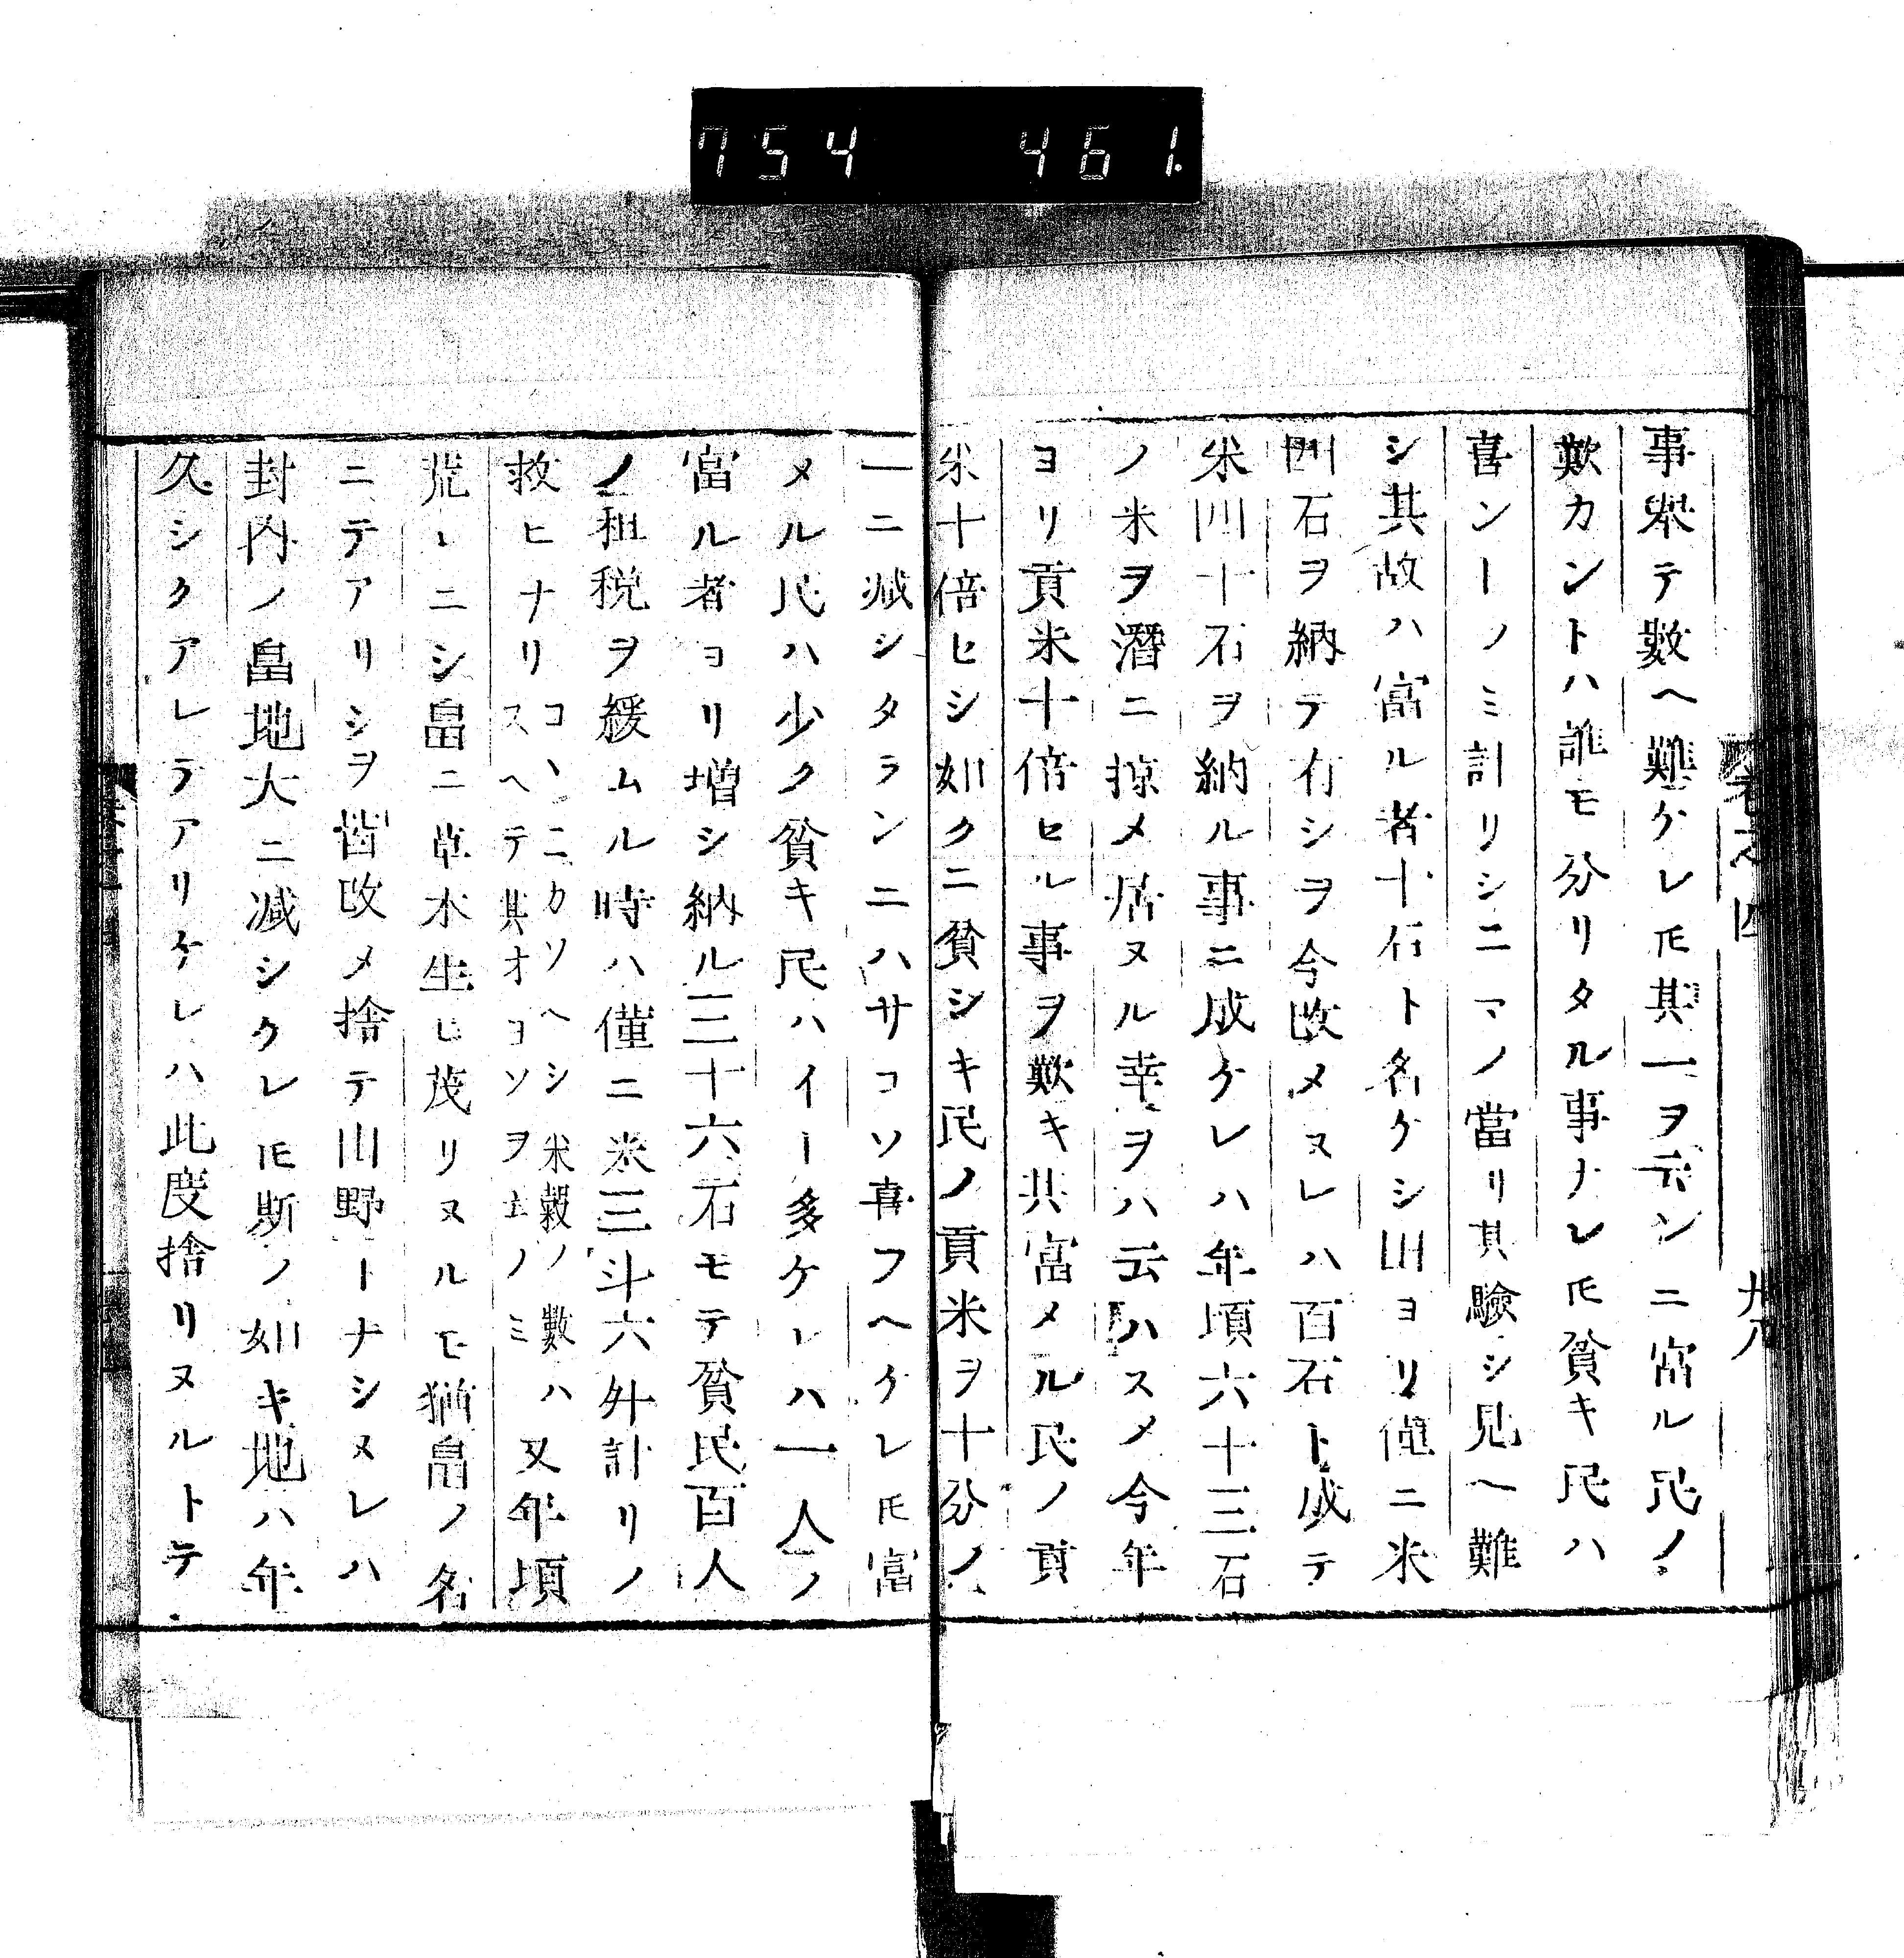 754 461.
卷之四
廿八
事舉テ數ヘ難ケレ𪜈其一ヲ云ンニ富ル民ノ
歎カントハ誰モ分リタル事ナレ𪜈貧キ民ハ
喜ンヿノミ計リシニマノ當リ其驗シ見ヘ難
シ其故ハ富ル者十石ト名ケシ田ヨリ僅ニ米
四石ヲ納テ有シヲ今改メヌレハ百石ト成テ
米四十石ヲ納ル事ニ成ケレハ年頃六十三石
ノ米ヲ潛ニ掠メ居ヌル幸ヲハ云ハスメ今年
ヨリ貢米十倍ヒル事ヲ歎キ其富メル民ノ貢
米十倍ヒシ如クニ貧シキ民ノ貢米ヲ十分ノ
一ニ減シタランニハサコソ喜フヘケレ𪜈富
メル民ハ少ク貧キ民ハイヿ多ケレハ一人ノ
富ル者ヨリ増シ納ル三十六石モテ貧民百人
ノ租税ヲ緩ムル時ハ僅ニ米三斗六升計リノ
救ヒナリコヽニカソヘシ米穀ノ數ハスヘテ其オヨソヲ云ノミ又年頃
荒ヽニシ畠ニ草木生ヒ茂リヌルモ猶畠ノ名
ニテアリシヲ皆改メ捨テ山野トナシヌレハ
封内ノ畠地大ニ減シクレ𪜈斯ノ如キ地ハ年
久シクアレテアリケレハ此度捨リヌルトテ